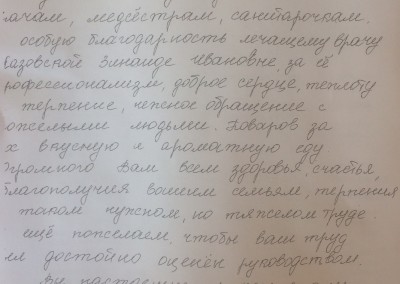 рачам, медсёстрам, санитарочкам.
особую благодарность лечащему врачу
Казовской Зинаиде Ивановне, за её
рофессионализм, доброе сердце, теплоту
терпение, нежное обращение с
ожелыми людьми. Поваров за
х вкусную и ароматную еду.
Огромного Вам всем здоровья, счастья,
благополучия вашим семьям, терпения
таком нужном, но тяжелом труде.
ещё пожелаем, чтобы ваш труд
ил достойно оценён руководством.
Вы